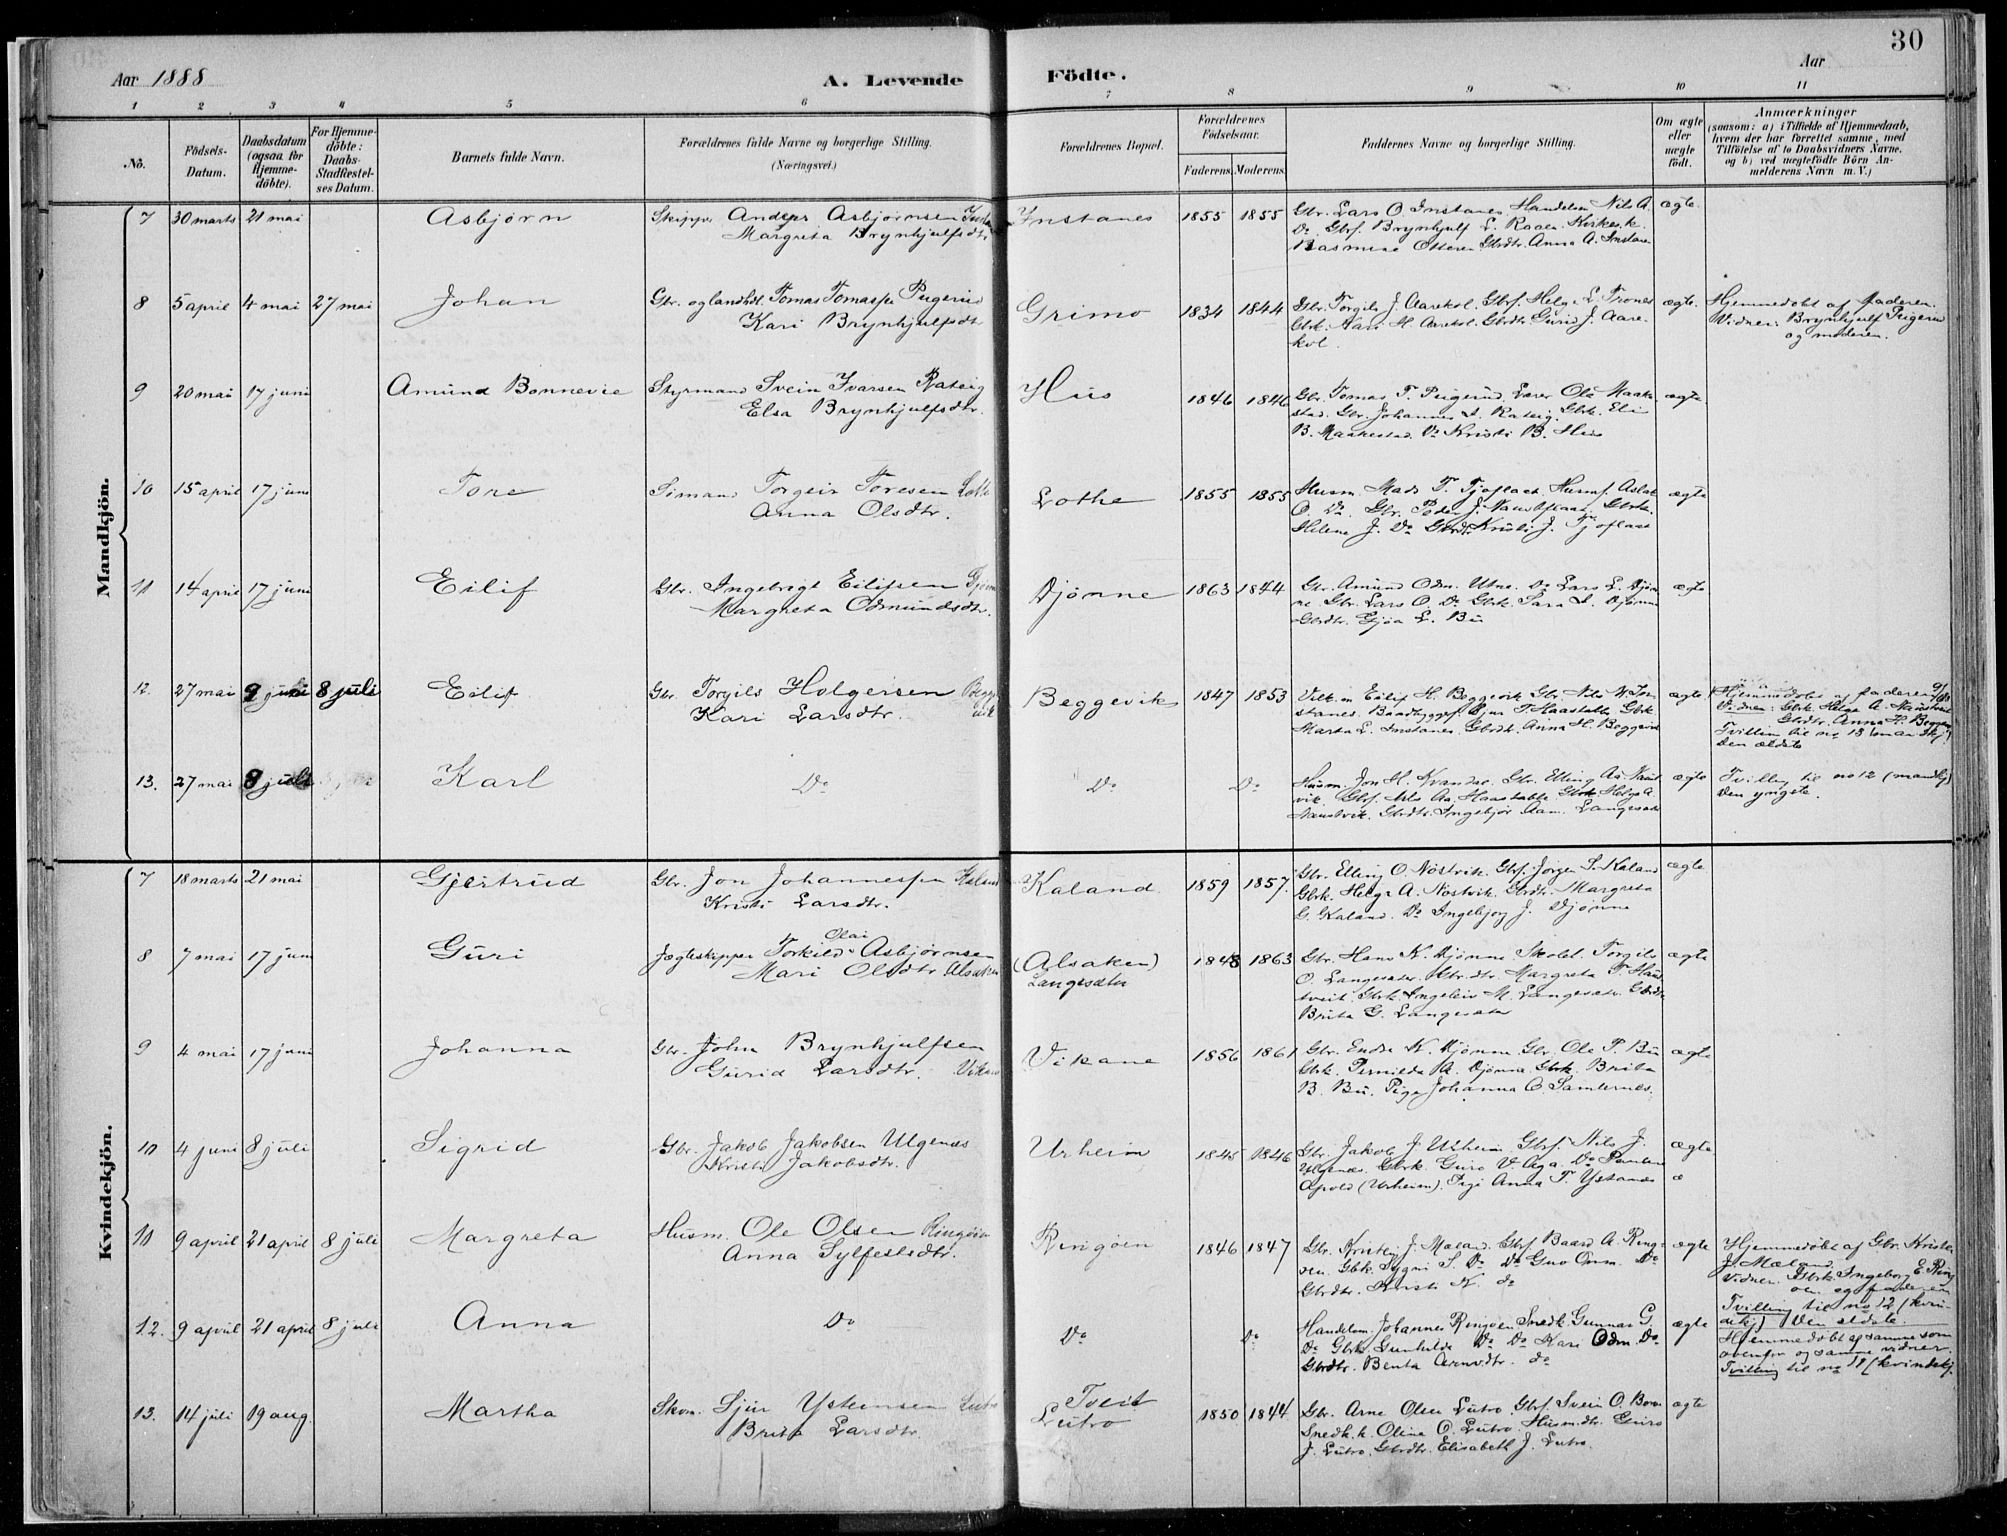 30
Aar 1888
A. Levende Födte.
Aar
1 2 3 4 5 6 7 8 9 10 11
No.
Födsels-Datum.
Daabsdatum (ogsaa for Hjemme-döbte).
For Hjemme-döbte: Daabs-Stadfæstel-ses Datum.
Barnets fulde Navn.
Forældrenes fulde Navne og borgerlige Stilling. (Næringsvei.)
Forældrenes Bopæl.
Forældrenes Födselsaar.
Faderens Moderens
Faddernes Navne og borgerlige Stilling.
Om ægte eller uægte födt.
Anmærkninger
(saasom: a) i Tilfælde af Hjemmedaab, hvem der har forrettet samme, med Tilföielse af to Daabsvidners Navne, og b) ved uægtefödte Börn An-melderens Navn m. V.)
Mandkjön.
7 30 marts 21 mai Asbjørn Skipper Anders Asbjørnsen
Margreta Brynhjulfsdtr Instanes 1855 1855 Gbr. Lars O. Instanes. Handelsm Nils A.
Do Gbf. Brynhjulf L. Raaen. Kirkes.k.
Rasmine Otteren Gbrdtr. Anna A. Instanes ægte.
8 5 april 4 mai 27 mai Johan Gbr. og landhdl. Tomas Tomasse
Kari Brynhjulfsdtr Grimo 1834 1844 Gbr. Torgils J. Aarekol. Gbf. Helge L. Trones
Gbrk. Kari H. Aarekol. Gbrdtr. Gurid J. Aare-
kol. ægte. Hjemmedøbt af faderen.
Vidner: Brynhjulf
og moderen.
9 20 mai 17 juni Amund Bonnevie Styrmand Svein Ivarsen Rateig
Elsa Brynhjulfsdtr. Hus 1846 1846 Gbr. Tomas T. Lærer Ola Maake-
stad. Gbr. Johannes I. Rateig. Gbrk. Eli
B. Maakestad. Do Kristi B. Hus ægte
10 15 april 17 juni Tore Sømand Torgeir Toresen Lothe
Anna Olsdtr. Lothe 1855 1855 Husm. Mads T. Tjoflaat. Husmf. Aslak
O. Do. Gbr. Peder J. Naustflaat. Gbrk.
Helene J. Do Gbrdtr Kristi J. Tjoflaat ægte
11 14 april 17 juni Eilif Gbr. Ingebrigt Eilifsen
Margreta Odmundsdtr. Djønne 1863 1844 Gbr. Amund Odm. Utne. Do Lars L. Djøn-
ne Gbr. Lars O. Do Gbrk. Sara I. Djønne
Gbrdtr. Gjøa L. Bu ægte
12. 27 mai 9 juni 8 juli Eilif Gbr. Torgils Holgersen Begge
vik
Kari Larsdtr. Beggevik 1847 1853 Eilif H. Beggevik Gbr. Nils N. Ins-
stanes. Baadbyggerf. T. Haastabbe Gbrk.
Marta L. Instanes. Gbrdtr. Anna H. Beggevik ægte Hjemmedøbt af faderen
Vidner: Gbrk. Helga A. Naustvik
Gbrdtr. Anna H. Beggev
Tvilling til no 13 (mandkj)
den ældste
13. 27 mai 8 juli Karl Do Do Do Husm. Jon H. Kvandal. Gbr. Elling Aa. Naust-
vik. Gbf. Nils Aa. Haastabbe Gbrk Helga A.
Naustvik. Gbrdtr. Ingebjør Aam. Langesæter ægte Tvilling til no 12 (mandkj)
den yngste.
Kvindekjön.
7 18 marts 21 mai Gjertrud Gbr. Jon Johannessen Kaland
Kristi Larsdtr. Kaland 1859 1857. Gbr. Elling O Nøstvik. Gbf. Jørgen S. Kaland
Gbrk. Helga A. Nøstvik. Gbrdtr. Margreta
G. Kaland. Do Ingebjørg J. Djønne ægte
8 7 mai 17 juni Guri Jægteskipper Torkild Olai Asbjørnsen
Mari Olsdtr Alsaken (Alsaken)
Langesæter 1848 1863 Gbr. Hans K. Djønne. Skolel. Torgils
O. Langesæter. Gbr.dtr. Margreta T. Haus-
tveit. Gbrk. Ingeleiv M. Langesæter. Gbrdtr
Brita G. Langesæter ægte
9 4 mai 17 juni Johanna Gbr. John Brynhjulfsen
Gurid Larsdtr. Vikane Vikane 1856 1861 Gbr. Endre K. Djønne Gbr. Ole P. Bu
Gbrk. Pernilde A. Djønne Gbrk. Brita
B. Bu. Pige Johanna O. Samlenes. ægte
10 4 juni 8 juli Sigrid Gbr. Jakob Jakobsen Ulgenæs
Kristi Jakobsdtr. Urheim 1845 1846 Gbr. Jakob J. Urheim. Gbf. Nils J.
Ulgenæs. Gbrk. Guro V. Aga. Do
Apold (Urheim). Pige Anna T. Ystanes ægte
11 9 april 21 april 8 juli Margreta Husm. Ole Olsen Ringøen
Anna Sylfestdtr. Ringøen 1846 1847 Gbr. Kristen J. Mæland. Gbf Baard A. Ring-
øen. Gbk. Sygni S. Do Do Guro Orm. Do
Gbrdtr. Kristi K. do ægte Hjemmedøbt af Gbr. Kristen
J. Mæland.
Vidner. Gbrk. Ingeborg E. Ring
øen og faderen
Tvilling til no 12 (kvin-
dekj) Den ældste.
12. 9 april 21 april 8 juli Anna Do Do Do Handelsm. Johannes Ringøen Snedk. Gunnar G.
Do Gbrk. Gunhilde Do Do Kari Odm. Do
Gbrdtr. Benta Arnvdtr. do ægte Hjemmedøbt af samme som
ovenfor og samme vidner.
Tvilling til no 11 (kvindekj.
13. 14 juli 19 aug. Martha Skom. Sjur Ysteinsen Lutro
Brita Larsdtr. Tveit
Lutro 1850 1844 Gbr. Arne Olsen Lutro Gbf. Svein O.
Snedk.k. Oline O. Lutro. Husm.dtr. Guro
J. Lutro. Gbrdtr. Elisabeth J. Lutro. ægte